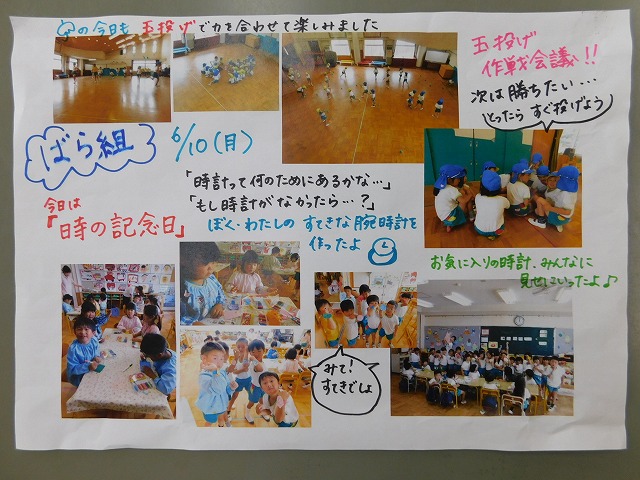 の今日も 玉投げで力を合わせて楽しみました
玉投げ
作戦会議!!
次は勝ちたい…
とったら すぐ投げよう
ばら組
6/10(月)
今日は
「時の記念日」
「時計って何のためにあるかな…」
「もし時計がなかったら…?」
ぼく・わたしの すてきな腕時計を
作ったよ
お気に入りの時計、みんなに
見せにいったよ♪
みて!
すてきでしょ